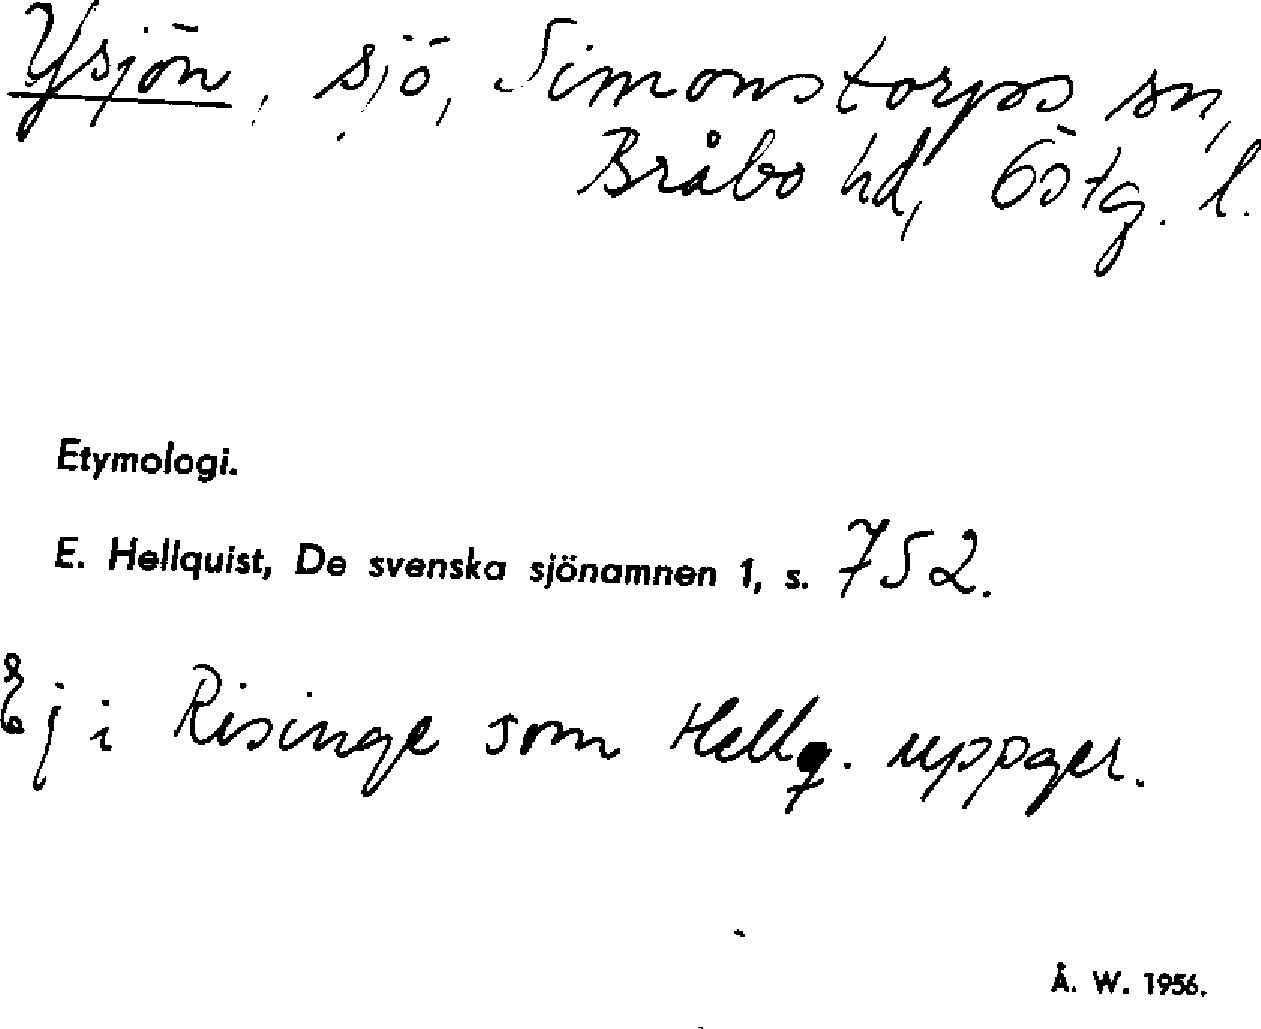 Ysjön, sjö, Simonstorps sn,
Bråbo hd, Östg. l.
Etymologi.
E. Hellquist, De svenska sjönamnen 1, s. 752.
Ej i Risinge som Hellq. uppger.
Å. W. 1956.